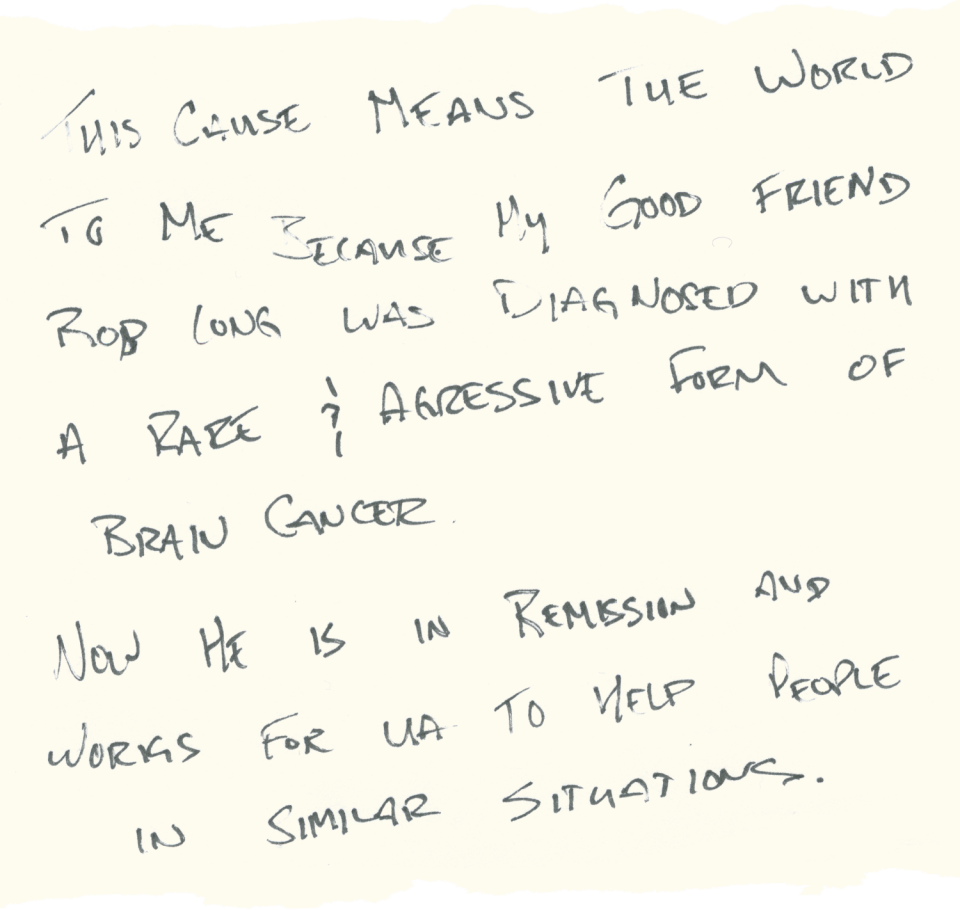 THIS CAUSE MEANS THE WORLD
TO ME BECAUSE MY GOOD FRIEND
ROB LONG WAS DIAGNOSED WITH
A RARE & AGRESSIVE FORM OF
BRAIN CANCER.
NOW HE IS IN REMISSION AND
WORKS FOR UA TO HELP PEOPLE
IN SIMILAR SITUATIONS.